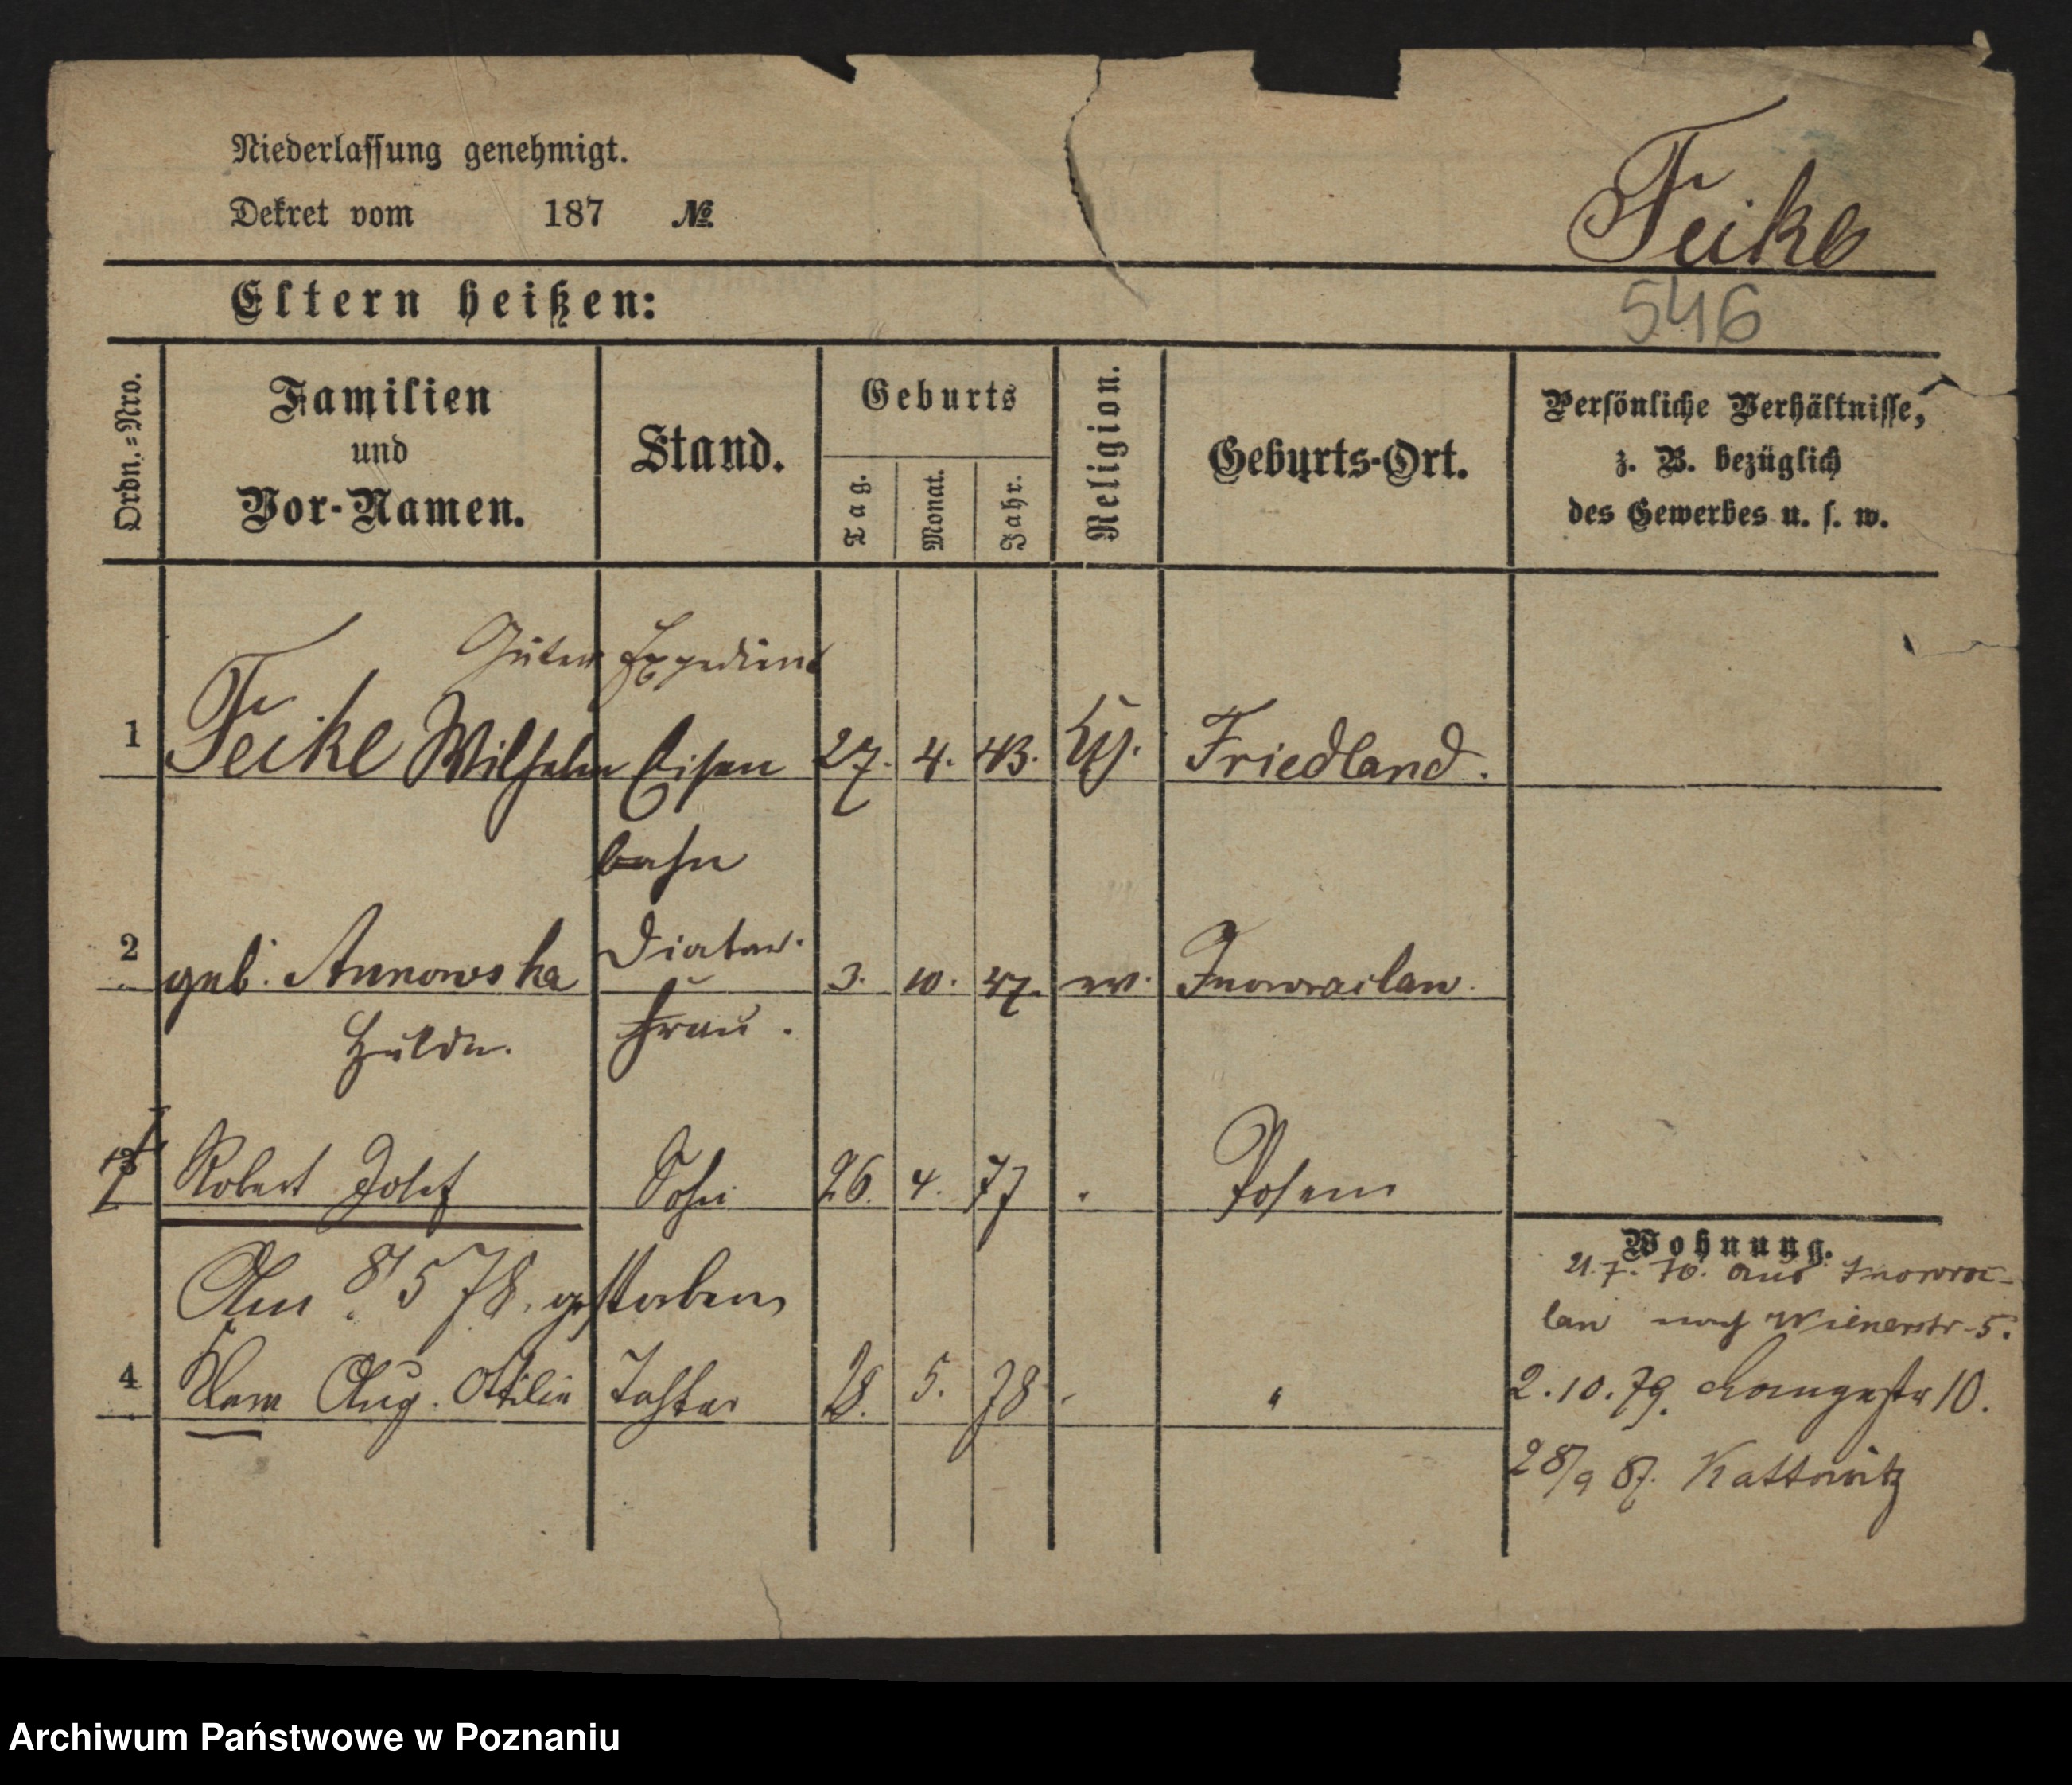 Niederlassung genehmigt.
Dekret vom 187 №
Feike
546
Eltern heißen:
Ordn.=Nro.
Familien
und
Vor-Namen.
Stand.
Geburts
Tag.
Monat.
Jahr.
Religion.
Geburts-Ort.
Persönliche Verhältnisse,
z. B. bezüglich
des Gewerbes u. s. w.
Güter Expedient
1 Feike Wilhelm Eisen 27. 4. 43. Friedland.
bahn
Diätar.
2 geb. Annowska 3. 10. 47. Inowraclaw.
Hulda. Frau.
3 Robert Josef Sohn 26. 4. 77 " Posen
Am 8/5 78. gestorben
4 Clara Aug. Ottilie Tochter 5. 78 " "
Wohnung.
21.7.76. aus Inowrac-
law nach Wienerstr. 5.
2.10.79. Langestr 10.
28/9 87. Kattowitz
Archiwum Państwowe w Poznaniu